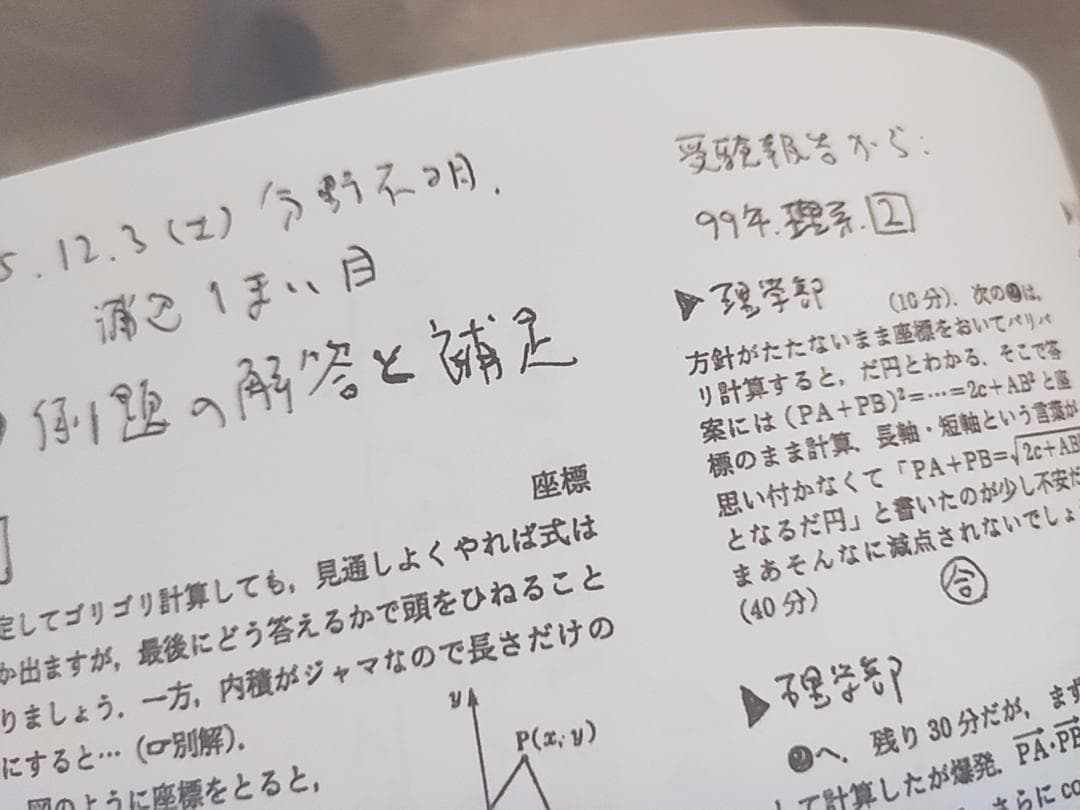 5.12.3(土) 分野不明.
浦辺 うまい目
例題の解答と補足
座標
定してゴリゴリ計算しても，見通しよくやれば式は
か出ますが，最後にどう答えるかで頭をひねること
りましょう．一方，内積がジャマなので長さだけの
にすると…（☞別解）．
図のように座標をとると，
y
P(x, y)
受験報告から：
99年.理系.2
▶理学部
(10分)．次の❷は，
方針がたたないまま座標をおいてバリバ
リ計算すると，だ円とわかる．そこで答
案には (PA+PB)²=…=2c+AB² と座
標のまま計算．長軸・短軸という言葉が
思い付かなくて「PA+PB=√2c+AB
となるだ円」と書いたのが少し不安だ
まあそんなに減点されないでしょ
(40分)
合
▶理学部
❷へ．残り30分だが，まず
して計算したが爆発．PA・PB
さらに co